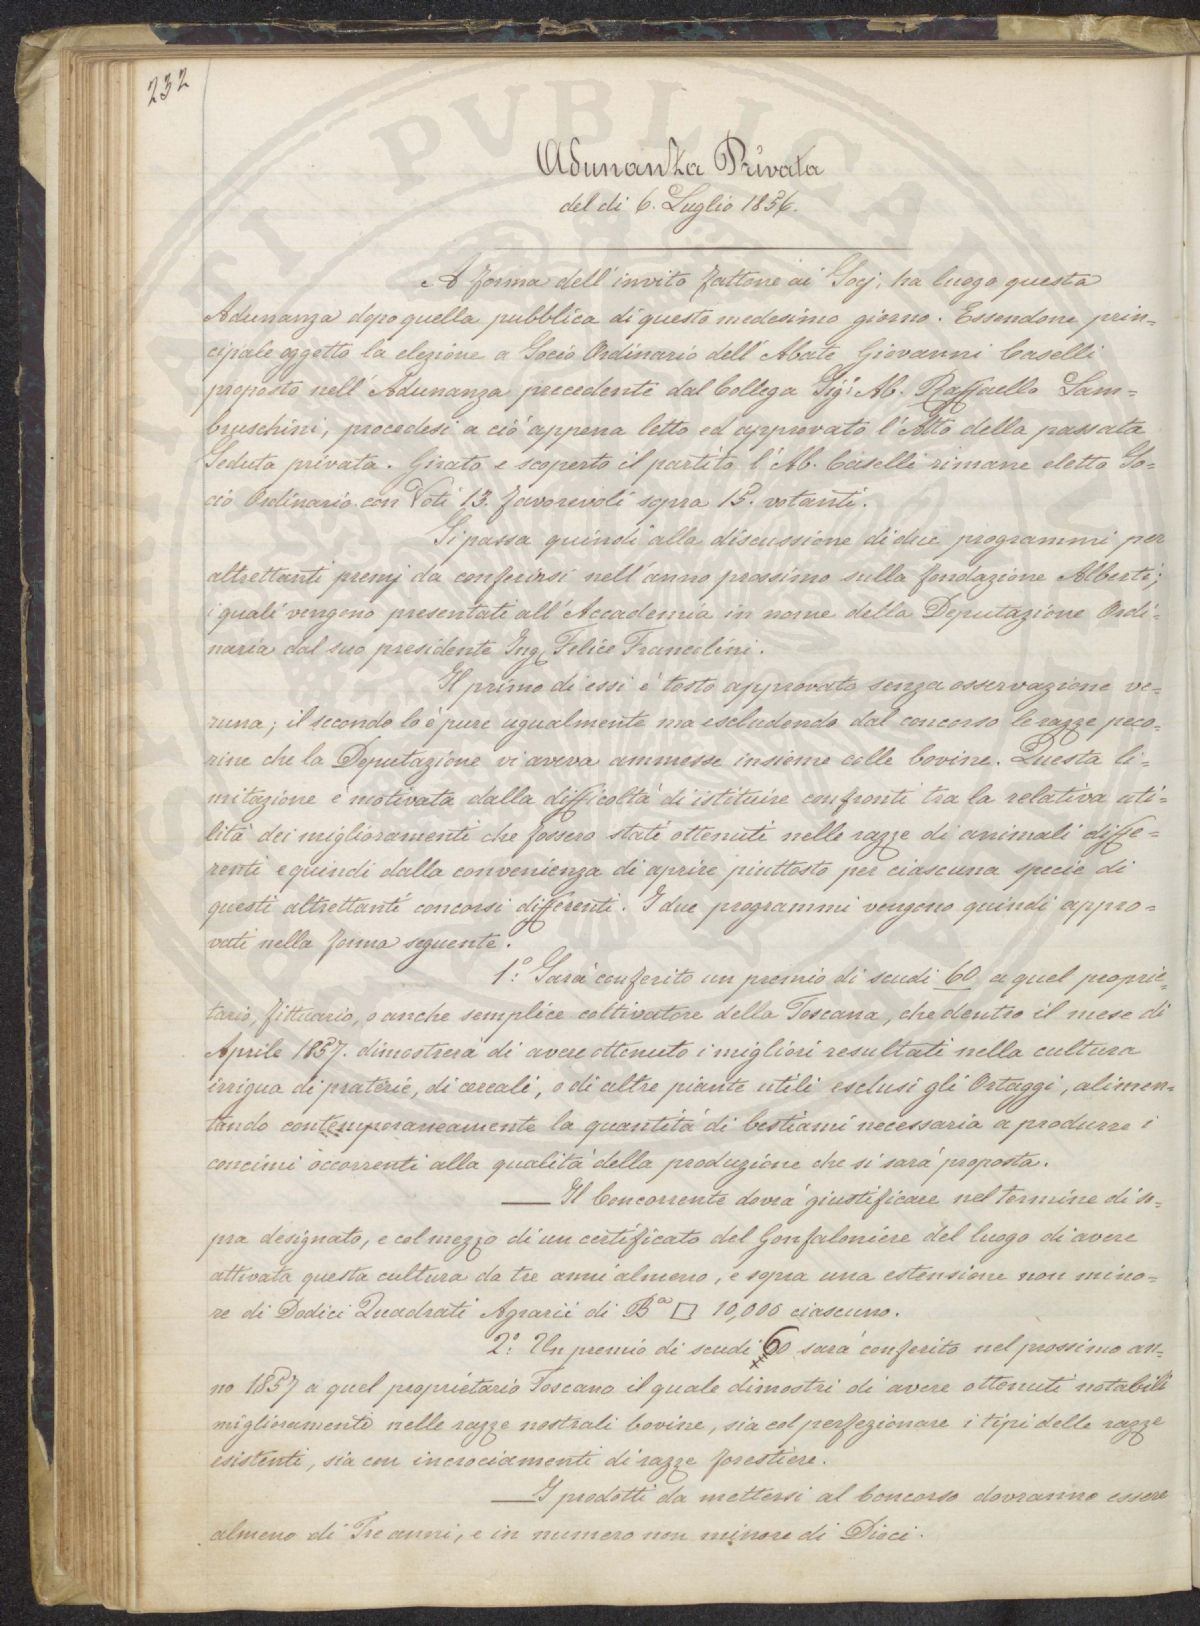 232
Adunanza Privata
del di 6. Luglio 1856.
A forma dell'invito fattone ai Socj, ha luogo questa
Adunanza dopo quella pubblica di questo medesimo giorno. Essendone prin-
cipale oggetto la elezione a Socio Ordinario dell'Abate Giovanni Caselli
proposto nell'Adunanza precedente dal Collega Sigr Ab. Raffaello Lam-
bruschini, procedesi a ciò appena letto ed approvato l'Atto della passata
Seduta privata. Girato e scoperto il partito l'Ab. Caselli rimane eletto So-
cio Ordinario con Voti 13. favorevoli sopra 15. votanti.
Si passa quindi alla discussione di due programmi per
altrettanti premj da conferirsi nell'anno prossimo sulla fondazione Alberti;
i quali vengono presentati all'Accademia in nome della Deputazione Ordi-
naria dal suo presidente Ing. Felice Francolini.
Il primo di essi è tosto approvato senza osservazione ve-
runa; il secondo lo è pure ugualmente ma escludendo dal concorso le razze peco-
rine che la Deputazione vi aveva ammesse insieme colle bovine. Questa li-
mitazione è motivata dalla difficoltà di istituire confronti tra la relativa uti-
lità dei miglioramenti che fossero stati ottenuti nelle razze di animali diffe-
renti e quindi dalla convenienza di aprire piuttosto per ciascuna specie di
questi altrettanti concorsi differenti. I due programmi vengono quindi appro-
vati nella forma seguente.
1.º Sarà conferito un premio di scudi 60 a quel proprie-
tario, fittuario, o anche semplice coltivatore della Toscana, che dentro il mese di
Aprile 1857. dimostrerà di avere ottenuto i migliori resultati nella cultura
irrigua di praterie, di cereali, o di altre piante utili esclusi gli Ortaggi, alimen-
tando contemporaneamente la quantità di bestiami necessaria a produrre i
concimi occorrenti alla qualità della produzione che si sarà proposta.
— Il Concorrente dovrà giustificare nel termine di so-
pra designato, e col mezzo di un certificato del Gonfaloniere del luogo di avere
attivata questa cultura da tre anni almeno, e sopra una estensione non mino-
re di Dodici Quadrati Agrarii di Bª □ 10,000 ciascuno.
2.º Un premio di scudi 60 sarà conferito nel prossimo an-
no 1857 a quel proprietario Toscano il quale dimostri di avere ottenuti notabili
miglioramenti nelle razze nostrali bovine, sia col perfezionare i tipi delle razze
esistenti, sia con incrociamenti di razze forestiere.
— I prodotti da mettersi al Concorso dovranno essere
almeno di Tre anni, e in numero non minore di Dieci.